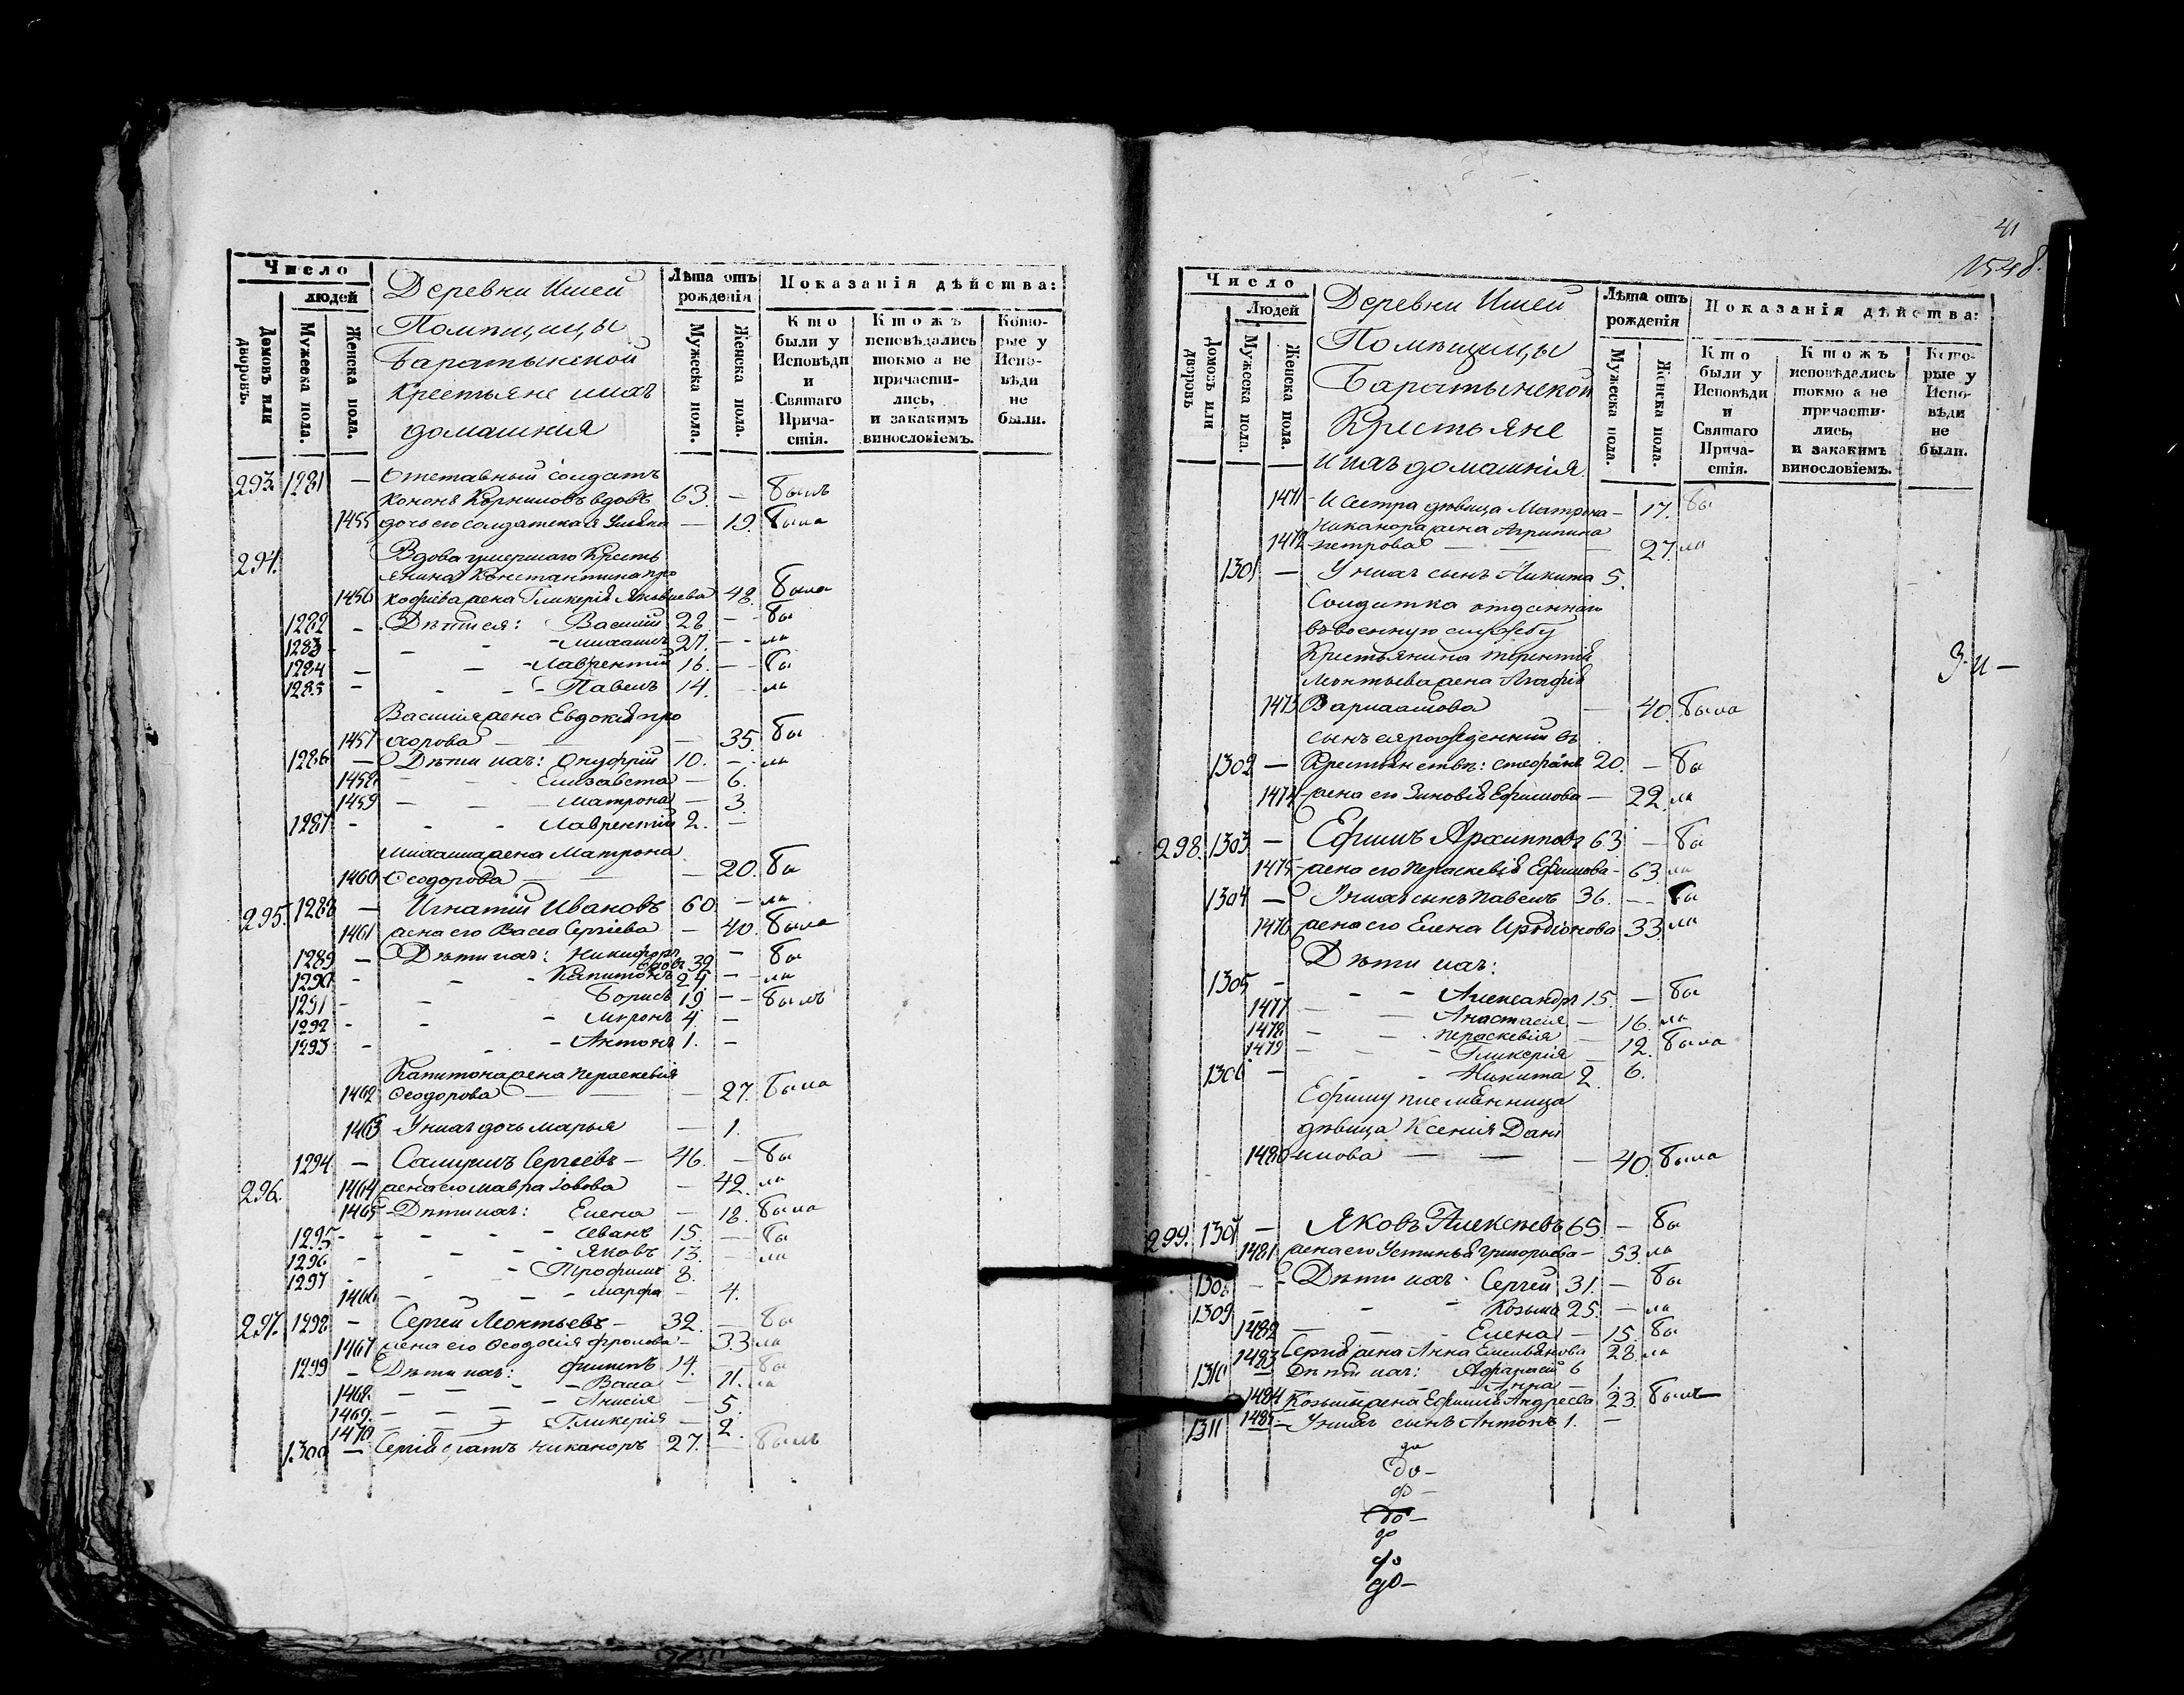 Число
людей
Домовъ или дворовъ.
Мужеска пола.
Женска пола.
Деревни Ишей
Помѣщицы
Баратынской
Крестьяне ихъ
домашнія
Лѣта отъ рожденія
Мужеска пола.
Женска пола.
Показанія дѣйства:
Кто были у Исповѣди и Святаго Причастія.
Ктожъ исповѣдались токмо а не причастились, и закакимъ винословіемъ.
Которые у Исповѣди не были.
293. 1281 — Отставный солдатъ
Кононъ Корниловъ вдовъ 63. — былъ
1455 дочь его солдатская — 19. была
294. Вдова умершаго Кресть
янина Константина Про
1456 кофьева жена Гликерія Яковлева 48. была
1282 — Дѣти ея: Василій 28 — бы
1283 - Михаилъ 27. — ли
1284 — Лаврентій 16. — бы
1285 — Павелъ 14. — ли
Василія жена Евдокія Про
1457 хорова — — 35. бы
1286 — Дѣти ихъ: Онуфрій 10. — ли
1458 — Елизавета — 6.
1459 — Матрона — 3.
1287 - Лаврентій 2. —
Михаила жена Матрона
1460 Ѳеодорова — — 20. бы
295. 1288 — Игнатій Ивановъ 60 — ли
1461 жена его Васса Сергіева — 40. была
1289 — Дѣти ихъ: Никифоръ
вдовъ 39 — бы
1290 - Капитонъ 24. — ли
1291 - Борисъ 19. — былъ
1292 - Миронъ 4. —
1293 - Антонъ 1. —
Капитона жена Параскевія
1462 Ѳеодорова — — 27. была
1463 У нихъ дочь Марья — 1.
1294 — Самуилъ Сергѣевъ — 46. — бы
296. 1464 жена его Мавра Іовова — 42. ли
1465 Дѣти ихъ: Елена — 18. была
1295 - Иванъ 15. — бы
1296 - Яковъ 13. — ли
1297 - Трофимъ 8.
1466 — Марфа — 4.
297. 1298 — Сергей Леонтьевъ — 32. — бы
1467 жена его Ѳеодосія Фролова — 33 ли
1299 — Дѣти ихъ: Филипъ 14. — бы
1468. — Васса — 11. ли
1469. — Анисія — 5.
1470 — Гликерія — 2.
1300 — Сергія братъ Никаноръ 27. — былъ
41
1548.
Число
Людей
Домовъ или дворовъ
Мужеска пола.
Женска пола.
Деревни Ишей
Помѣщицы
Баратынской
Крестьяне
и ихъ домашнія.
Лѣта отъ рожденія
Мужеска пола.
Женска пола.
Показанія дѣйства:
Кто были у Исповѣди и Святаго Причастія.
Ктожъ исповѣдались токмо а не причастились, и закакимъ винословіемъ.
Которые у Исповѣди не были.
1471 - И сестра дѣвица Матрона — 17. бы
Никанора жена Агрипина
1472 Петрова — — 27. ли
1301 — У нихъ сынъ Никита 5.
Солдатка отданнаго
въ военную службу
Крестьянина Терентія
Леонтьева жена Агафія
1473 Варлаамова — 40. была
сынъ ея рожденний въ
1302 — Крестьянствѣ: Стефанъ 20. — бы
1474 жена его Зиновія Ефимова — 22. ли
298. 1303 — Ефимъ Архиповъ 63 — бы
1475 жена его Параскевія Ефимова — 63. ли
1304 — У нихъ сынъ Павелъ 36. — бы
1476 жена его Елена Иродіонова 33 ли
Дѣти ихъ:
1305 - Александръ 15. — бы
1477 — Анастасія — 16. ли
1478 — Параскевія — 12. была
1479 — Гликерія — 6.
1306 — Никита 2.
Ефиму племянница
дѣвица Ксенія Дані
1480 илова — — 40. была
299. 1307 — Яковъ Алексѣевъ 65. — бы
1481 жена его Устинья Григорьева — 53. ли
1308 - Дѣти ихъ: Сергей 31. — бы
1309 - Козьма 25. — ли
1482 — Елена — 15. бы
1483 Сергія жена Анна Емельянова 28. ли
1310 — Дѣти ихъ: Афанасій 6
1484 Анна — 1.
1485 Козьмы жена Ефимія Андреева 23. была
1311 — У нихъ сынъ Антонъ 1. —